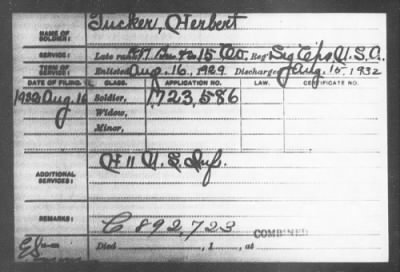 NAME OF SOLDIER: Tucker, Herbert
SERVICE: Late rank, Co. Reg't Sig Cps U.S.A.
TERM OF SERVICE: Enlisted Aug. 16, 1929 Discharged Aug. 15, 1932
DATE OF FILING. CLASS. APPLICATION NO. LAW. CERTIFICATE NO.
1932 Aug. 16 Soldier, 1723,586
Widow,
Minor,
ADDITIONAL SERVICES: H 11 U.S. Inf.
REMARKS: C 892,723
COMBINED
Died , 1 , at